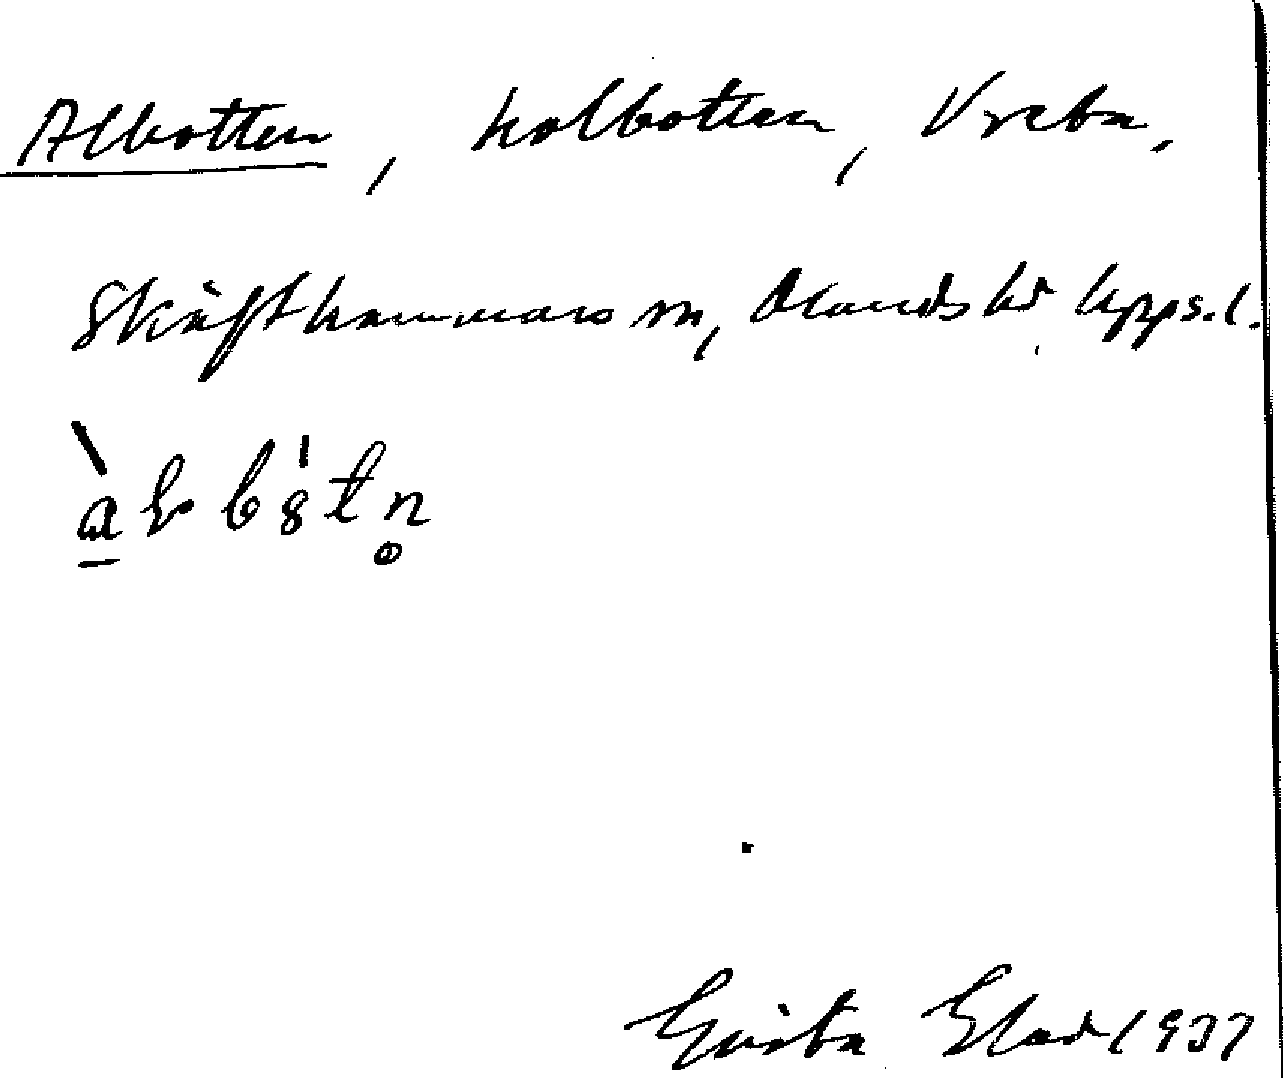 Albotten, kolbotten, Vreta,
Skäfthammars sn, Olands hd Upps. l.
Gösta Eklad 1937